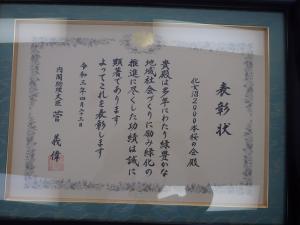 表彰状
化女沼2000本桜の会殿
貴殿は多年にわたり緑豊かな
地域社会づくりに励み緑化の
推進に尽くした功績は誠に
顕著であります
よってこれを表彰します
令和三年四月二十三日
内閣総理大臣 菅 義偉